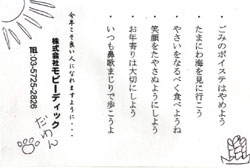 ・ごみのポイステはやめよう
・たまにわ海を見に行こう
・やさいをなるべく食べようね
・笑顔をたやさぬようにしよう
・お年寄りは大切にしよう
・いつも鼻歌まじりで歩こうよ
今年こそ良い人になれますように・・・
株式会社モビーディック
TEL 03-5725-2826
だめん